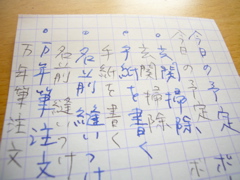 今日の予定 ボ
今日の予定 ボ
。玄関掃除
玄関掃除
。手紙を書く
手紙を書く
。名前縫いつけ
名前縫いつけ
。万年筆注文
万年筆注文